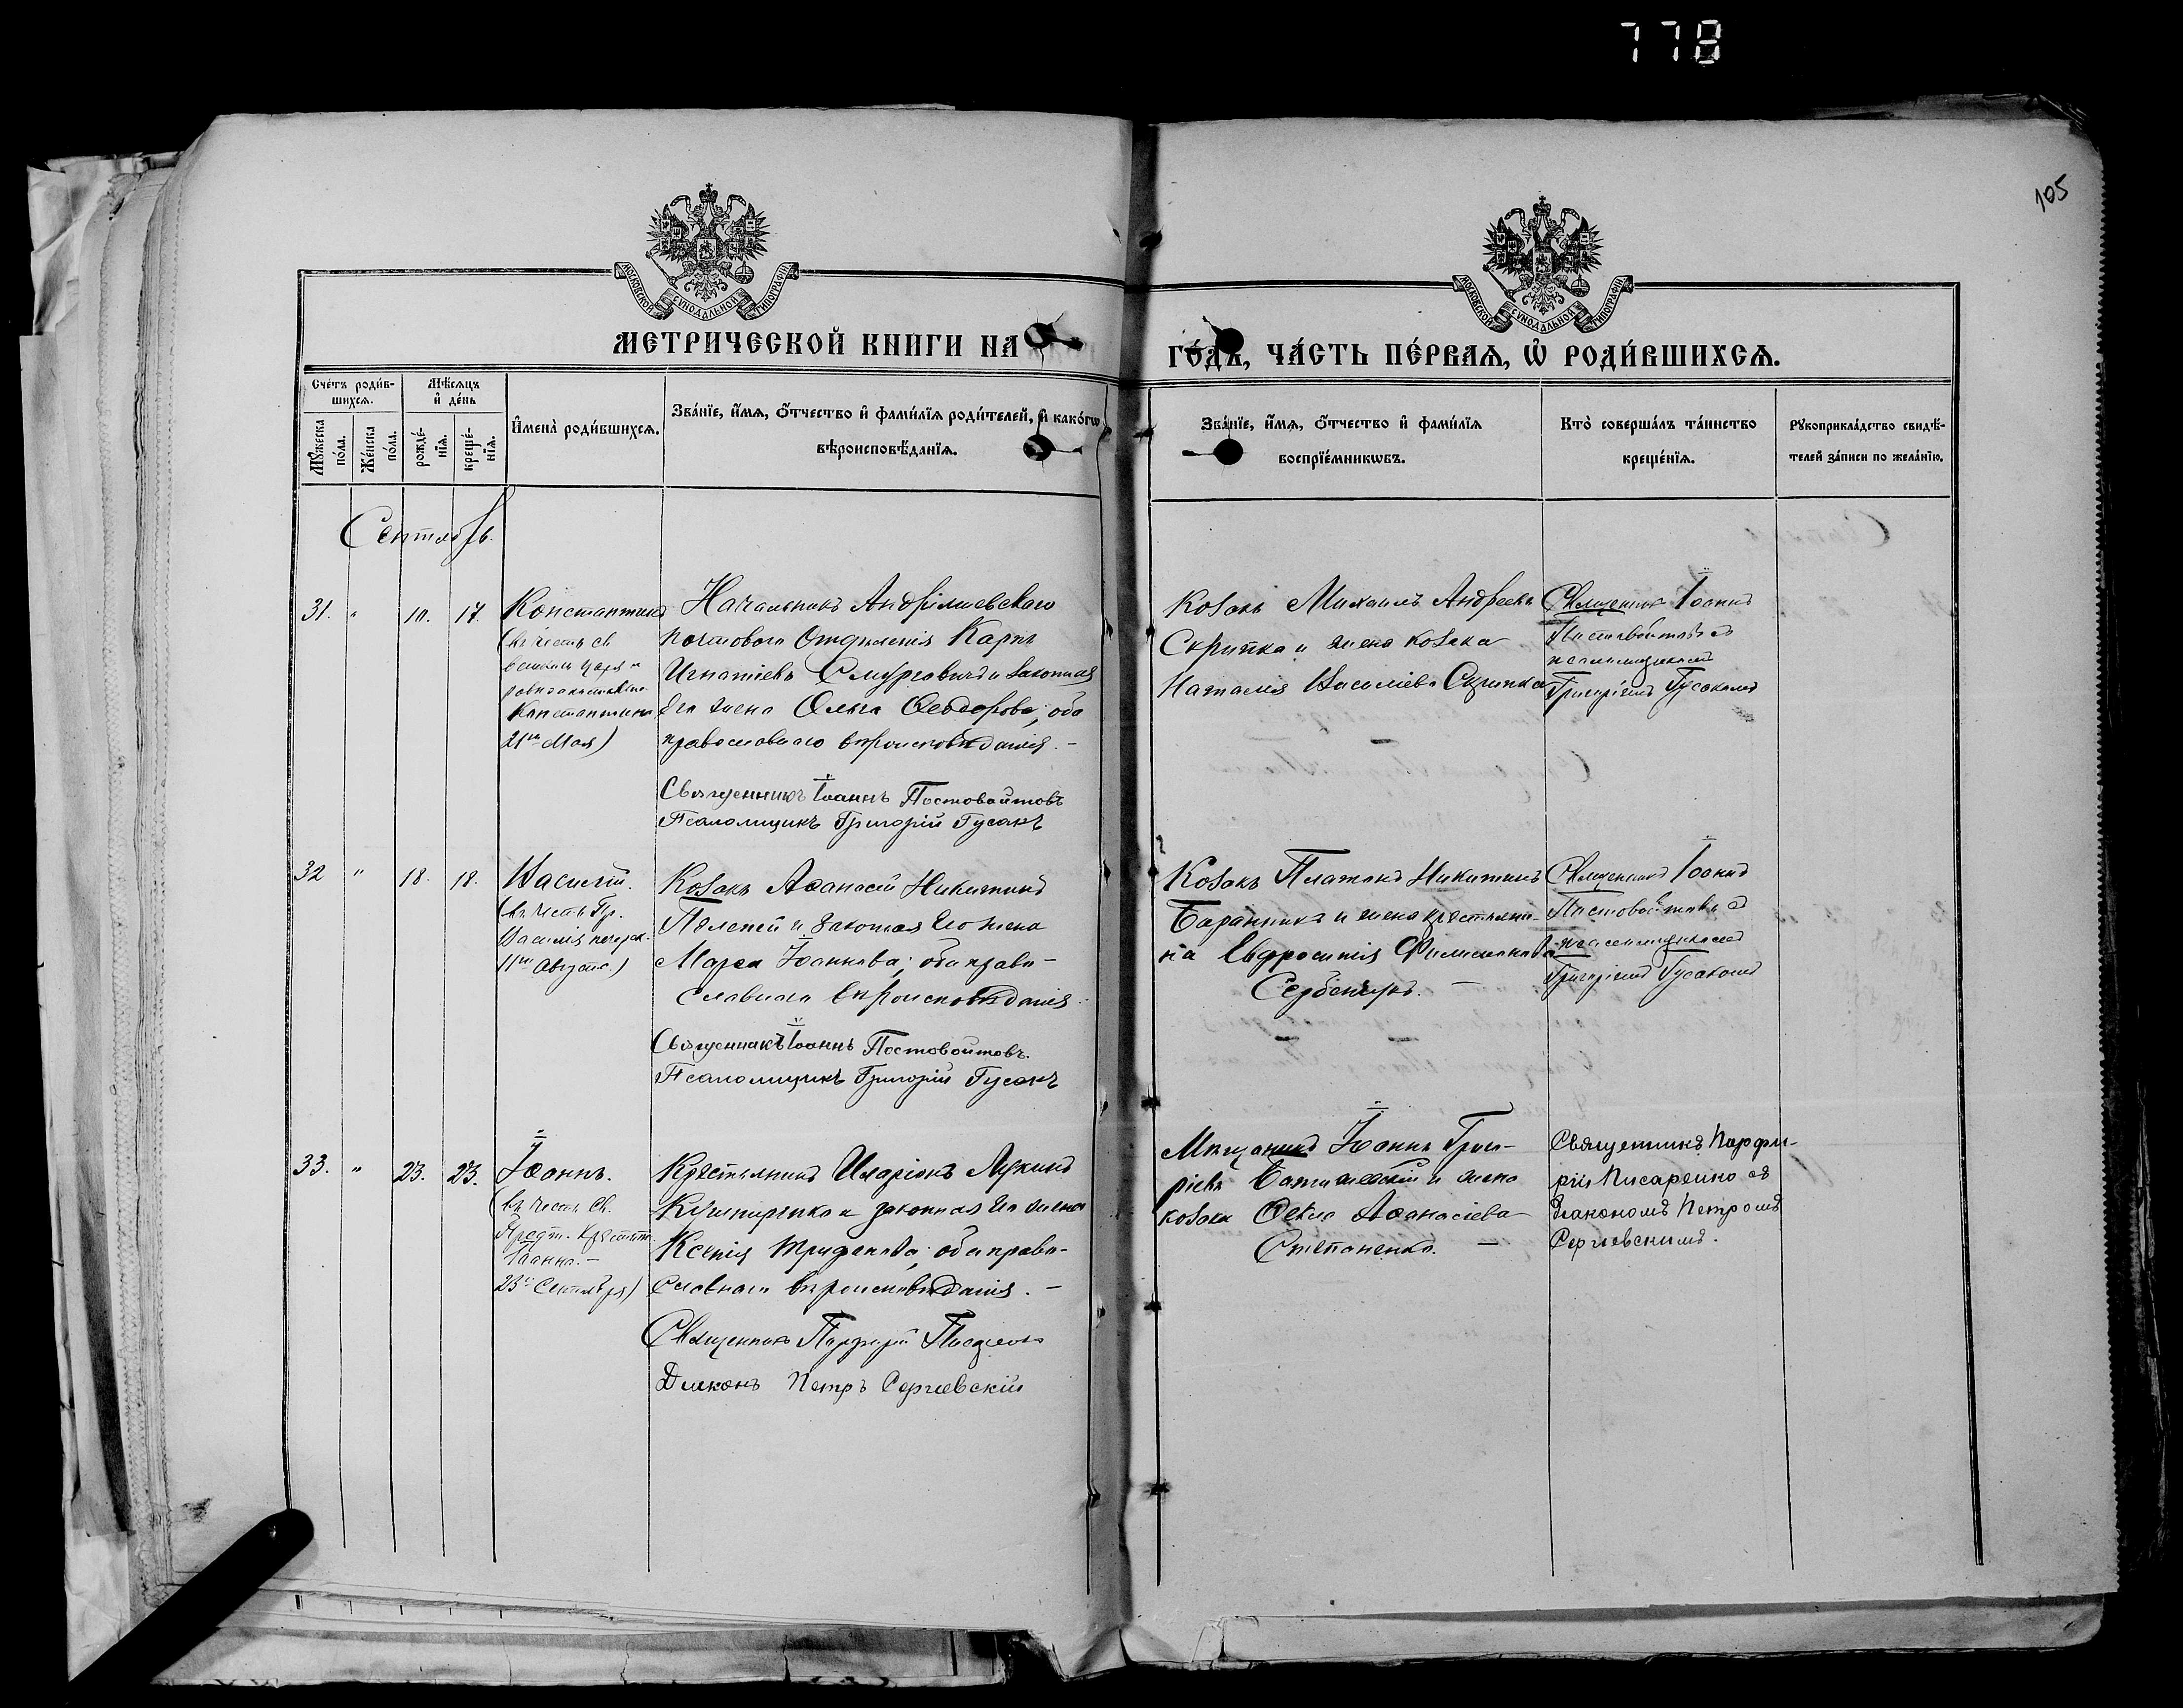 778
105
МОСКОВСКОЙ СѴНОДАЛЬНОЙ ТИПОГРАФІИ
МОСКОВСКОЙ СѴНОДАЛЬНОЙ ТИПОГРАФІИ
МЕТРИЧЕСКОЙ КНИГИ НА
ГО́ДЪ, ЧА́СТЬ ПЕ́РВАЯ, Ѡ РОДИ́ВШИХСЯ.
Сче́тъ роди́в-
шихся.
Мѣ́сяцъ
и де́нь
Мꙋ́жеска
по́ла.
Же́нска
по́ла.
рожде́-
нїя.
креще́-
нїя.
Имена̀ роди́вшихся.
Зва́нїе, и́мя, о́тчество и фами́лїя роди́телей, и како́гѡ
вѣроисповѣ́данїя.
Зва́нїе, и́мя, о́тчество и фами́лїя
воспрїе́мникѡвъ.
Кто̀ соверша́лъ та́инство
креще́нїя.
Рꙋкоприкла́дство свидѣ́-
телей за́писи по жела́нїю.
Сентябрь.
31. " 10. 17.
Константинъ
(въ честь св.
Константина
21го Мая)
Начальникъ
почтоваго Отдѣленія Карпъ
Игнатіевъ и законная
его жена Ольга Ѳеодорова; оба
православнаго вѣроисповѣданія. –
Священникъ Іоаннъ Постовойтовъ
Псаломщикъ Григорій Гусакъ
Козакъ Михаилъ Андреевъ
Скрипка и жена козака
Наталія Василіева Скрипка
Священникъ Іоаннъ
Постовойтовъ съ
псаломщикомъ
Григоріемъ Гусакомъ
32 " 18. 18.
Василій.
(въ честь Пр.
Василія печерск.
11го Августа.)
Козакъ Аѳанасій Никитинъ
и законная его жена
Марѳа Іоаннова; оба право-
славнаго вѣроисповѣданія.
Священникъ Іоаннъ Постовойтовъ.
Псаломщикъ Григорій Гусакъ
Козакъ Платонъ Никитинъ
и жена крестьяни-
на Евфросинія Филимонова
Священникъ Іоаннъ
Постовойтовъ съ
псаломщикомъ
Григоріемъ Гусакомъ
33. " 23. 23.
Іоаннъ.
(въ честь св.
Предт. Крестит.
Іоанна. –
23го Сентября)
Крестьянинъ Иларіонъ Лукинъ
и законная его жена
Ксенія; оба право-
славнаго вѣроисповѣданія. –
Священникъ Парфирій Писаренко
Діаконъ Петръ Сергіевскій
Мѣщанинъ Іоаннъ Григо-
ріевъ и жена
козака Ѳекла Аѳанасіева
Степаненко. –
Священникъ Парфи-
рій Писаренко съ
діакономъ Петромъ
Сергіевскимъ.